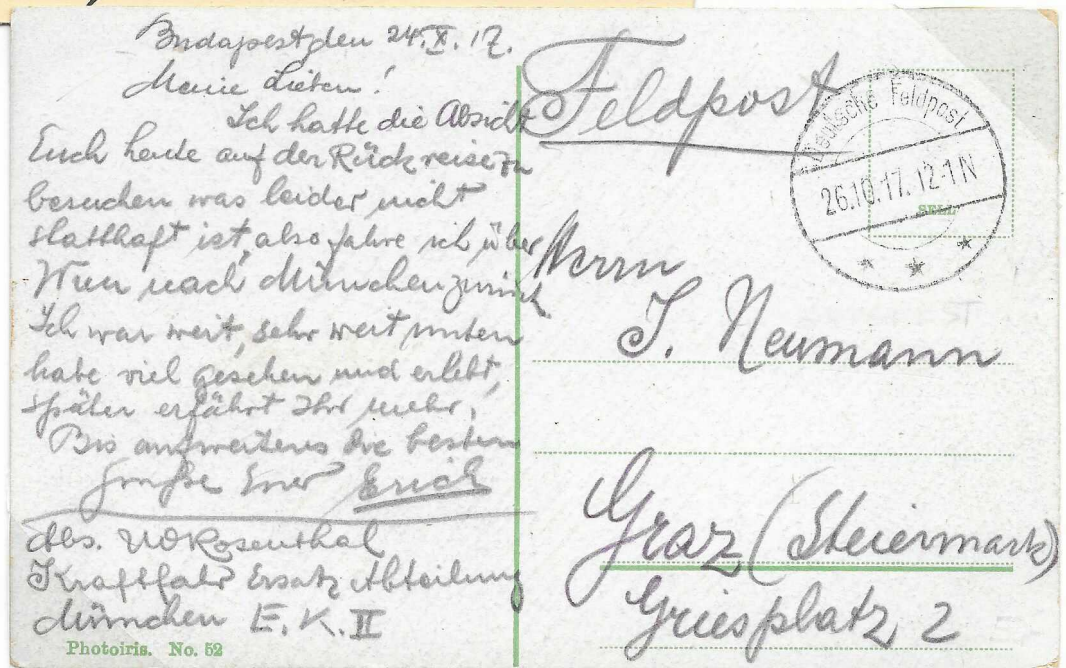 Budapest, den 24.X.17.
Meine Lieben!
Ich hatte die Absicht
Euch heute auf der Rückreise zu
besuchen was leider nicht
statthaft ist, also fahre ich über
Wien nach München zurück
Ich war weit, sehr weit unten
habe viel gesehen und erlebt,
später erfährt Ihr mehr,
Bis auf weiteres die besten
Grüße Euer Erich
Abs. UO Rosenthal
Kraftfahr Ersatz Abteilung
München E.K.II
Photoiris. No. 52
Feldpost
Deutsche Feldpost
26.10.17. 12-1 N
Herrn
J. Neumann
Graz (Steiermark)
Griesplatz 2